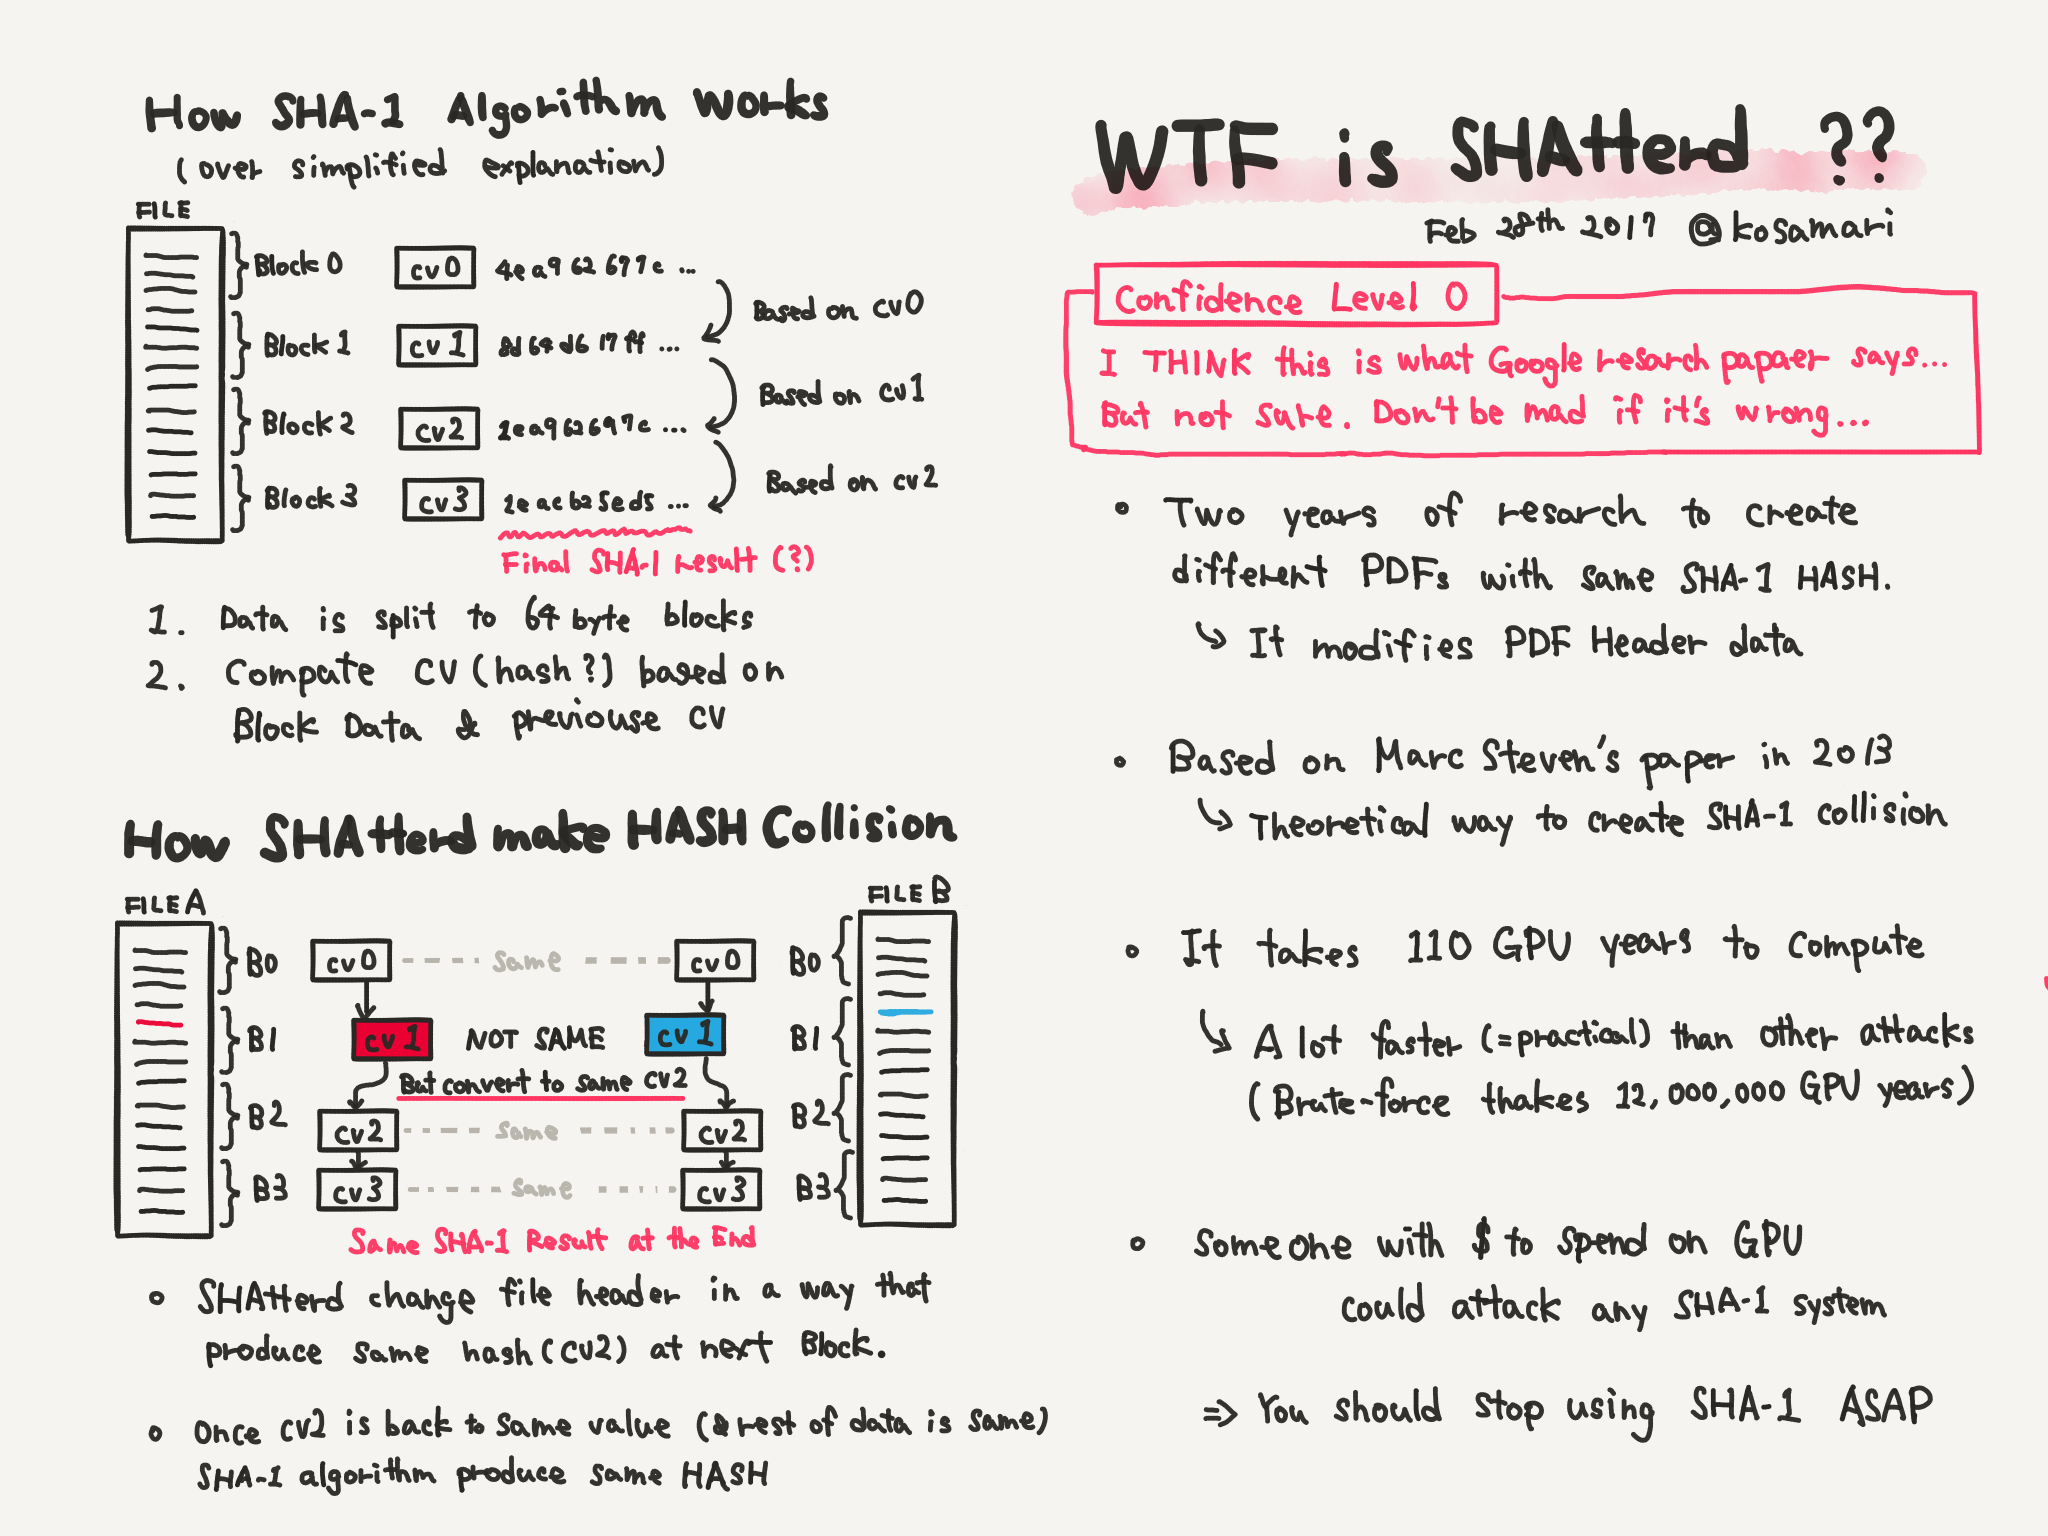 How SHA-1 Algorithm works
(over simplified explanation)
FILE
Block 0 cv0 4ea962677c ...
Based on cv0
Block 1 cv1 8d64d617ff ...
Based on cv1
Block 2 cv2 1ea962697c ...
Based on cv2
Block 3 cv3 2eacb25ed5 ...
Final SHA-1 result (?)
1. Data is split to 64 byte blocks
2. Compute CV (hash?) based on
Block Data & previouse CV
How SHAtterd make HASH Collision
FILE A
FILE B
B0 cv0 same cv0 B0
B1 cv1 NOT SAME cv1 B1
But convert to same cv2
B2 cv2 same cv2 B2
B3 cv3 same cv3 B3
Same SHA-1 Result at the End
SHAtterd change file header in a way that
produce same hash (cv2) at next Block.
Once cv2 is back to same value (& rest of data is same)
SHA-1 algorithm produce same HASH
WTF is SHAtterd ??
Feb 28th 2017 @kosamari
Confidence Level 0
I THINK this is what Google resarch papaer says...
But not sure. Don't be mad if it's wrong...
Two years of resarch to create
different PDFs with same SHA-1 HASH.
It modifies PDF Header data
Based on Marc Steven's paper in 2013
Theoretical way to create SHA-1 collision
It takes 110 GPU years to compute
A lot faster (=practical) than other attacks
(Brute-force thakes 12,000,000 GPU years)
Someone with $ to spend on GPU
could attack any SHA-1 system
⇒ You should stop using SHA-1 ASAP